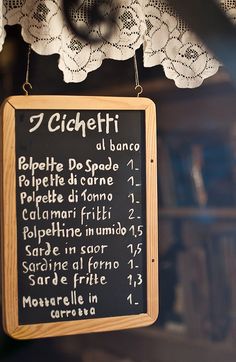 I Cichetti
al banco
Polpette Do Spade 1-
Polpette di carne 1-
Polpette di Tonno 1-
Calamari fritti 2-
Polpettine in umido 1,5
Sarde in saor 1,5
Sardine al forno 1-
Sarde fritte 1,3
Mozzarelle in 1-
carrozza